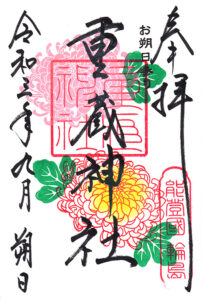 奉拝
お朔日参り
重蔵神社
令和三年九月朔日
能登國輪島